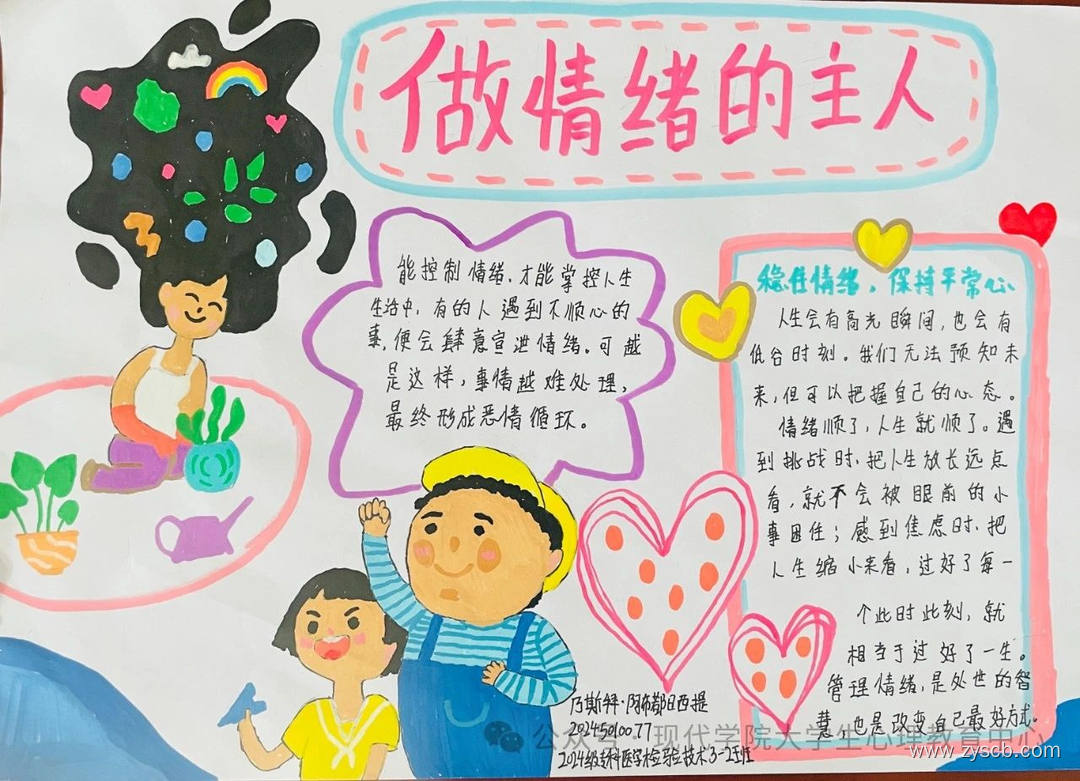 做情绪的主人
能控制情绪，才能掌控人生
生活中，有的人遇到不顺心的
事，便会肆意宣泄情绪。可越
是这样，事情越难处理，
最终形成恶情循环。
稳住情绪，保持平常心
人生会有高光瞬间，也会有
低谷时刻。我们无法预知未
来，但可以把握自己的心态。
情绪顺了，人生就顺了。遇
到挑战时，把人生放长远点
看，就不会被眼前的小
事困住；感到焦虑时，把
人生缩小来看，过好了每一
个此时此刻，就
相当于过好了一生。
管理情绪，是处世的智
慧，也是改变自己最好方式。
乃斯拜·阿布都日西提
20245010077
2024级专科医学检验技术3-2班
公众号 现代学院大学生心理教育中心
www.zyscb.com